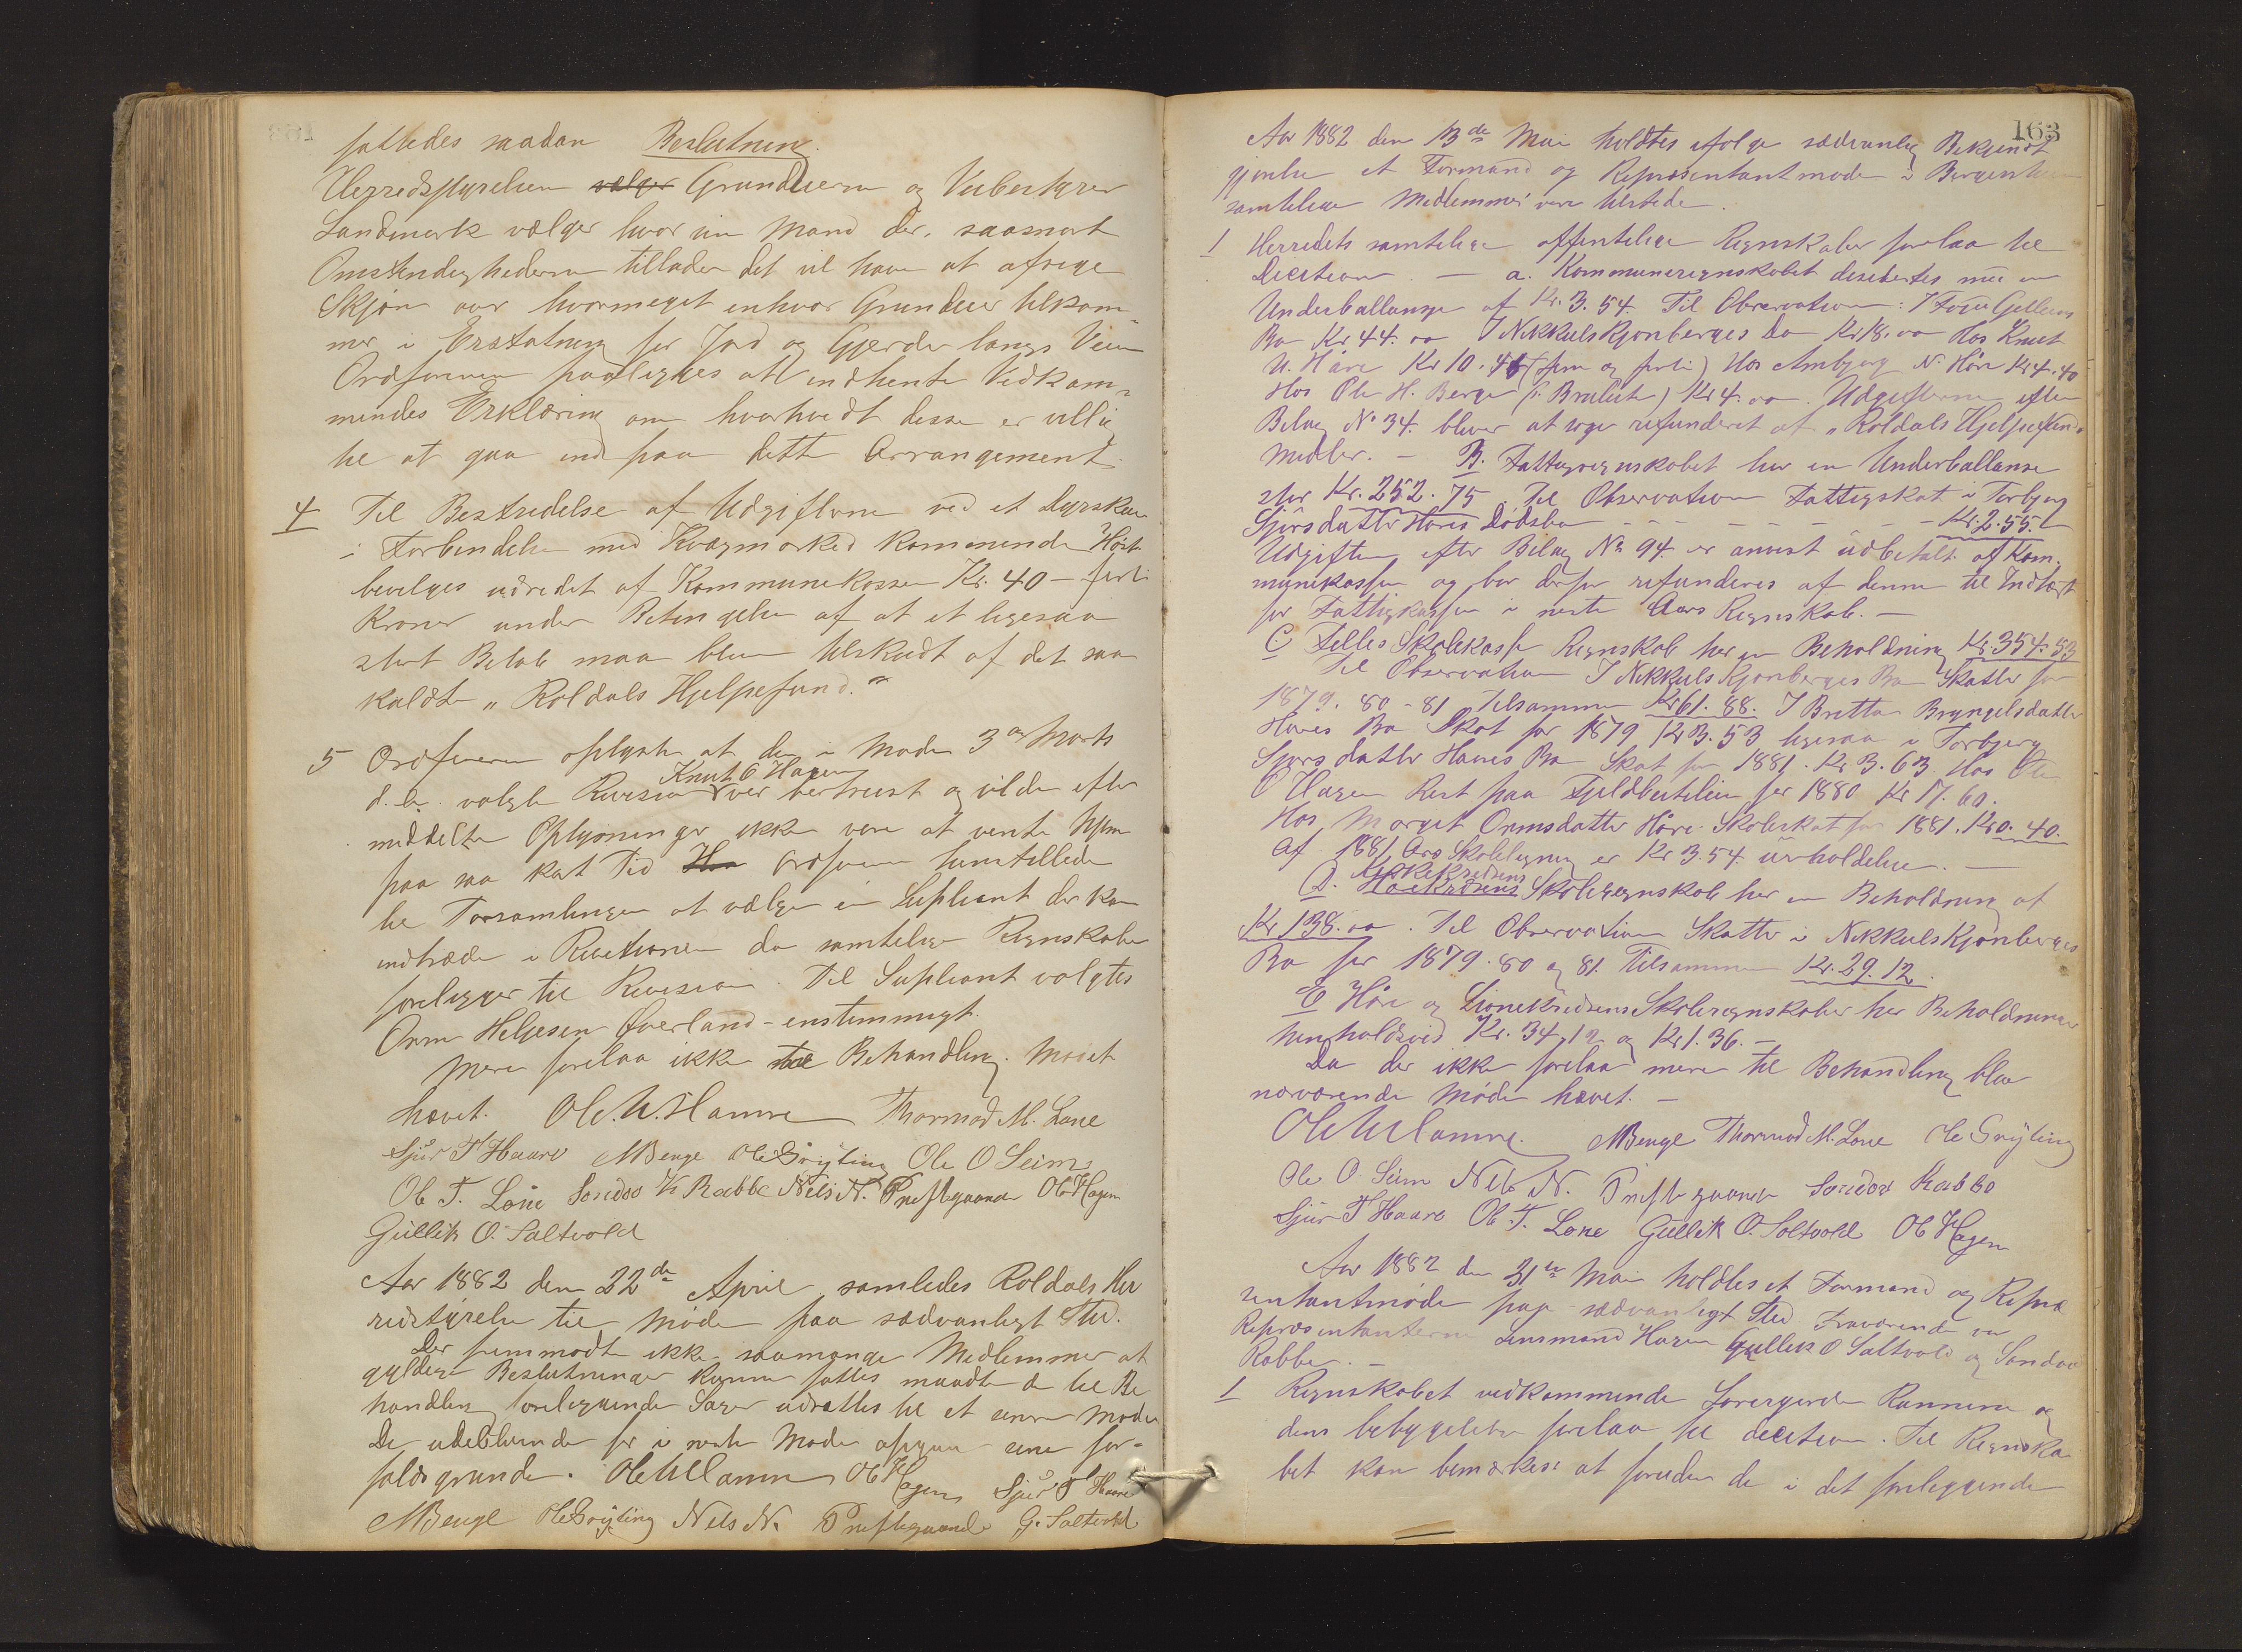 fattedes saadan Beslutning.
Herredsstyrelsen vælger Grundeierne og Veibestyrer
Landmark vælger hver en Mand der, saasnart
Omstendighederne tillader det vil have at afgive
Skjøn over hvormeget enhver Grundeier tilkom-
mer i Erstatning for Jord og Gjerder langs Veien
Ordføreren paalegges at indhente Vedkom-
mendes Erklæring om hvorhvidt disse er villig
til at gaa ind paa dette Arrangement.
4 Til Bestridelse af Udgifterne ved et Dyrskue
i Forbindelse med Kvægmarked kommende Høst
bevilges udredet af Kommunekassen Kr. 40 – firti
Kroner under Betingelse af at et ligesaa
stort Beløb maa blive tilskudt af det saa
kaldte „Roldals Hjelpefund."
5 Ordføreren oplyste at den i Møde 3die Marts
d. A. valgte Revisor Knut O Hagen var bortreist og vilde efter
meddelte Oplysninger ikke være at vente hjem
paa saa kort Tid Han Ordføreren henstillede
til Forsamlingen at vælge en Supleant der kan
indtræde i Revisionen da samtelige Regnskaber
foreligger til Revision. Til Supleant valgtes
Orm Helgesen Øverland – enstemmigt.
Mere forelaa ikke til Behandling. Mødet
hævet. Ole. N. Hamre Thormod M. Lone
Sjur T Haare MBenge Ole Gryting Ole O Seim
Ole T. Lone Sondov K Rabbe Nels N. Prestegaard Ob Hagen
Gullik O. Saltvold
Aar 1882 den 22de April samledes Roldals Her
redstyrelse til Møde paa sædvanligt Sted.
Der fremmødte ikke saamange Medlemmer at
gyldige Beslutninger kunne fattes maadte de til Be
handling foreliggende Sager udsættes til et senere Møde
De udeblivende før i neste Møde opgive sine for-
faldsgrunde. Ole N Hamre Ob Hagen Sjur T Haare
MBenge Ole Gryting Nels N. Prestegaard G. Saltvold
163
Aar 1882 den 13de Mai holdtes ifølge sædvanlig Bekjendt
gjørelse et Formand og Repræsentantmøde i Bergenhuus
samtelige Medlemmer vare tilstede.
1 Herredets samtelige offentelige Regnskaber forelaa til
Decition. — a. Kommuneregnskabet desiderdes med en
Underballanse af Kr. 3.54. Til Observation: I Gullens
Bo Kr 44.00 I Nekkuls Kjønberges Do Kr 18.00 Hos Knut
N. Håre Kr 10.45 (fem og firti) Hos Ambjørg N. Håre Kr 4.40
Hos Ole H. Berge (i Bratlut) Kr 4.00. Udgifterne efter
Belag No 34. bliver at søge refunderet af „Roldals Hjelpefunds
Midler. — B. Fattigregnskabet har en Underballanse
stor Kr. 252.75. Til Observation Fattigskat i Torbjørg
Sjursdatter Håres Dødsbo - - - - - - - Kr. 2.55.
Udgiften efter Bilag No 94. er anvist udbetalt af Kom-
munekassen og bør derfor refunderes af denne til Indtægt
for Fattigkassen i neste Aars Regnskab. —
C Felles Skolekasse Regnskab har en Beholdning Kr. 354.53
Til Observation I Nekkuls Kjønberges Bo Skatter for
1879. 80 - 81 tilsammen Kr 61.88. I Britta Bryngelsdatter
Haares Bo Skat for 1879 Kr 3.53 ligesaa i Torbjørg
Sjursdatter Haares Bo Skat for 1881. Kr 3.63 Hos Ole
O Hagen Rest paa Fjeldbeiteleie for 1880 Kr 17.60.
Hos Marget Ormsdatter Håre Skoleskat for 1881. Kr 0.40.
af 1881 Ars Skoleligning er Kr 3.54 uerholdelige. —
D. Kirkekredsens Hårekredsens Skoleregnskab har en Beholdning af
Kr 138.00. Til Observation Skatter i Nekkuls Kjønberges
Bo for 1879. 80 og 81. Tilsammen Kr. 29.12.
E Håre og Lonekredsens Skoleregnskaber har Beholdninger
henholdsvis Kr. 34.12 og Kr 1.36. —
Da der ikke forelaa mere til Behandling blev
nærværende Møde hævet. —
Ole N Hamre. MBenge Thormod M. Lone Ole Gryting
Ole O. Seim Nels N. Prestegaard Sondov Rabbe
Sjur T Haare Ole T. Lone Gullik O. Saltvold Ob Hagen
Aar 1882 den 31te Mai holdtes et Formand og Repræ
sentantmøde paa sædvanligt Sted Fraværende var
Repræsentanterne Lensmand Hagen Gullik O Saltvold og Sondov
Rabbe. —
1 Regnskabet vedkommende Rannene og
dens bebyggelse forelaa til decition. Til Regnska
bet kan bemærkes: at foruden de i det foreliggende